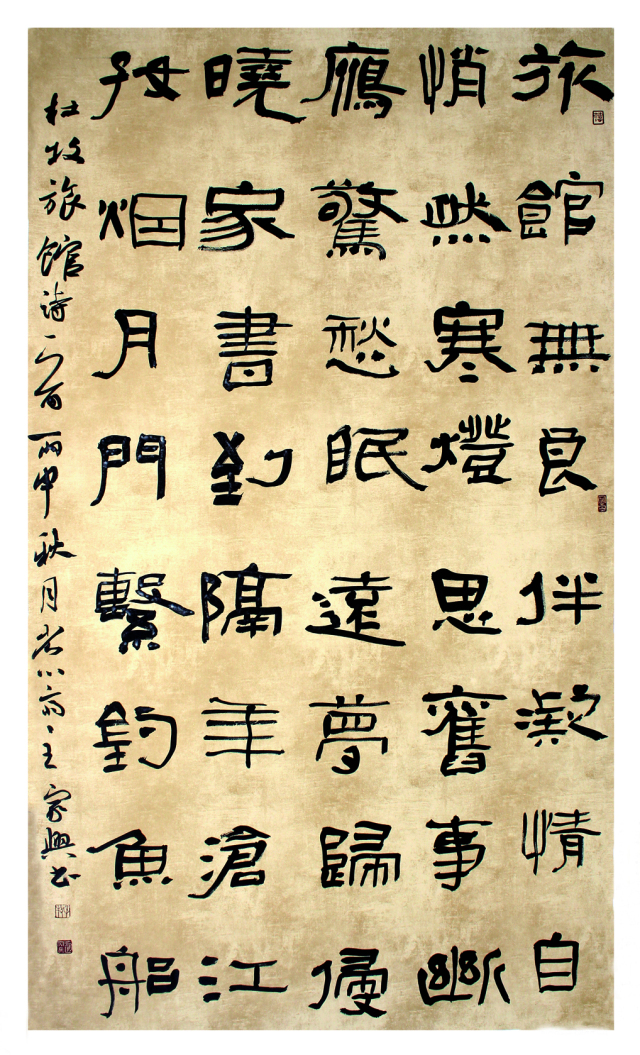 旅館無良伴凝情自
悄然寒燈思舊事斷
鴈驚愁眠遠夢歸侵
曉家書到隔年滄江
好烟月門繫釣魚船
杜牧旅館詩一首丙申秋月主家興書